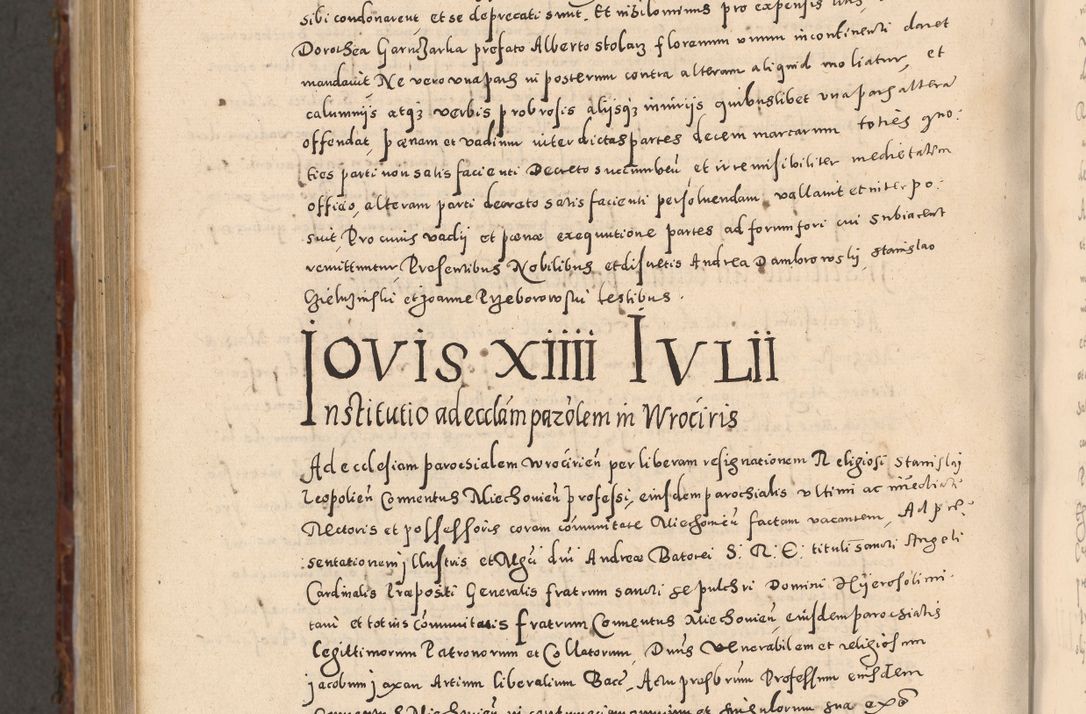 sibi condonarent et se deprecati sunt. Et nihilominus pro expensis
Dorothea Garnczarka prefato Alberto stolarz florenum unum incontinenti daret
mandavit, Ne vero una pars in posterum contra alteram aliquid moliatur, et
calumnijs atqz verbis probrosis alijsqz iniurijs quibuslibet una pars altera
offendat, pœnam et vadium inter dictas partes decem marcarum toties quo:
ties parti non satisfacienti Decreto succumbeń et irremisibiliter medietatem
officio, alteram parti decreto satisfacienti persoluendam vallavit et interpo:
suit, Pro cuius vadij et pœnæ exequutione partes ad forum fori cui subiacent
remittuntur, Presentibus Nobilibus et discretis Andrea Dambrowskij, Stanislao
Gieluzinski et Joanne Przeborowski testibus.
Jovis XIIII Iulii
Institutio ad ecclám parôlem in Wrociris
Ad ecclesiam parochialem Wrocirień per liberam resignationem Religiosi Stanislaj
Leopolień Conventus Miechovień professi, eiusdem parochialis ultimi ac immediati
Rectoris et possessoris coram communitate Miechovień factam vacantem, Ad pre:
sentationem Illustris et Rgci dni Andreæ Batorei S: R: E: tituli sancti Angeli
Cardinalis Præpositi Generalis fratrum sancti sepulchri Domini Hyerosolimi:
tani et totius communitatis fratrum Conventus Miechovień eiusdem parochialis
Legittimorum Patronorum et Collatorum, Dnus Venerabilem et religiosum
Jacobum Jaxan Artium liberalium Bacc, Actu presbrum Professum eiusdem
Conventus Miechovień in